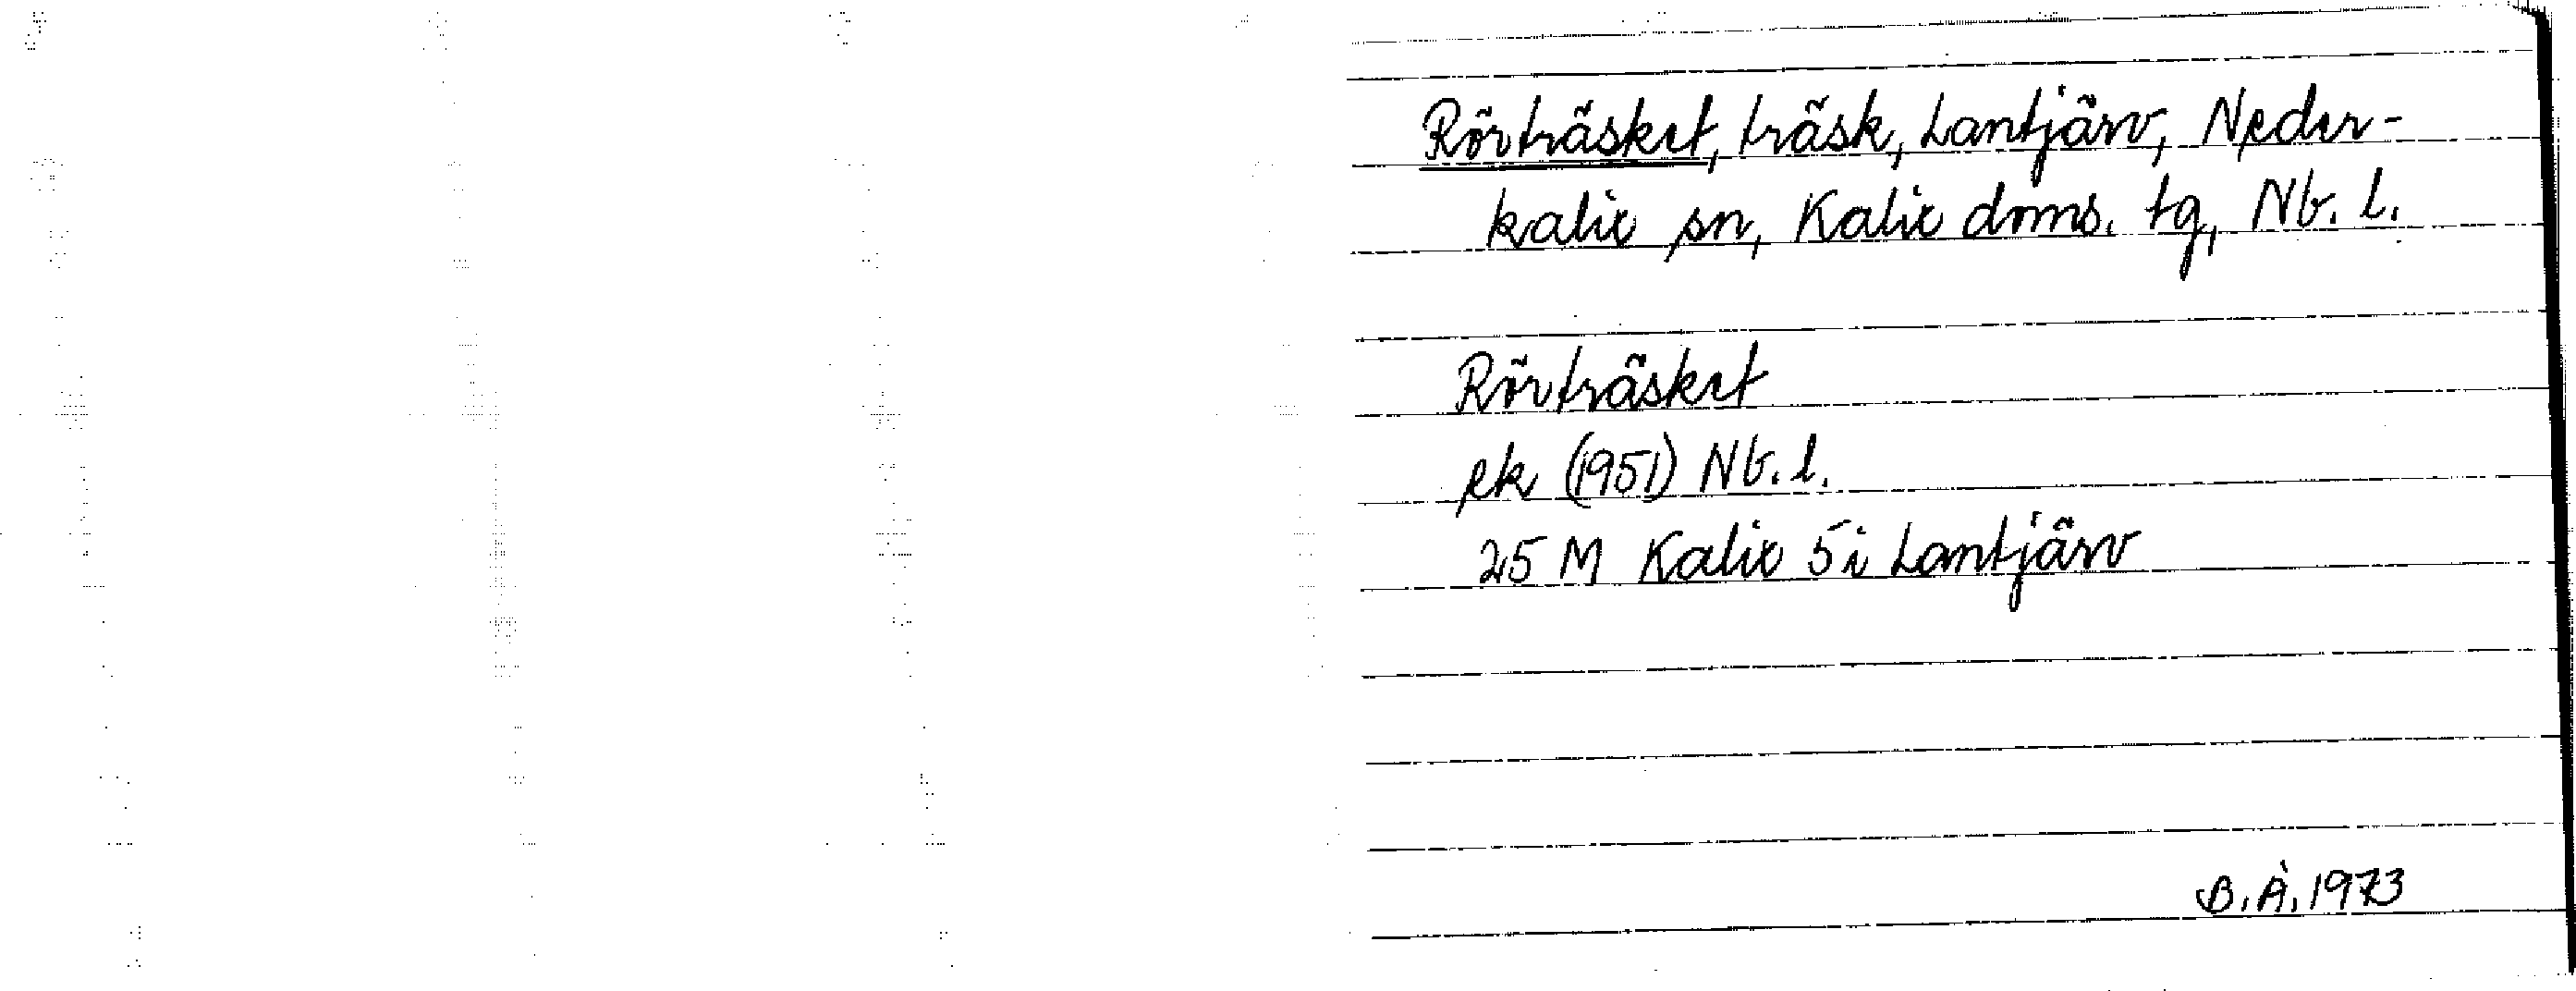 Rörträsket, träsk, Lantjärv, Neder-
kalix sn, Kalix doms. tg, Nb. l.
Rörträsket
ek (1951) Nb. l.
25 M Kalix 5i Lantjärv
B.Å. 1973